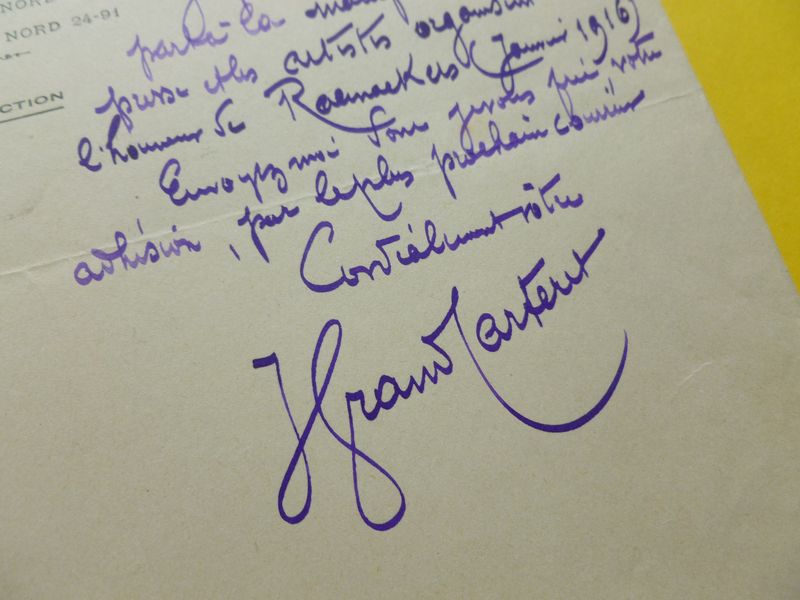 NORD
NORD 24-91
CTION
par la
presse et les artistes organisent
l'honneur de Raemaekers (Janvier 1916)
Envoyez moi donc je vous prie votre
adhésion, par le plus prochain courrier
Cordialement vôtre
J Grand Carteret